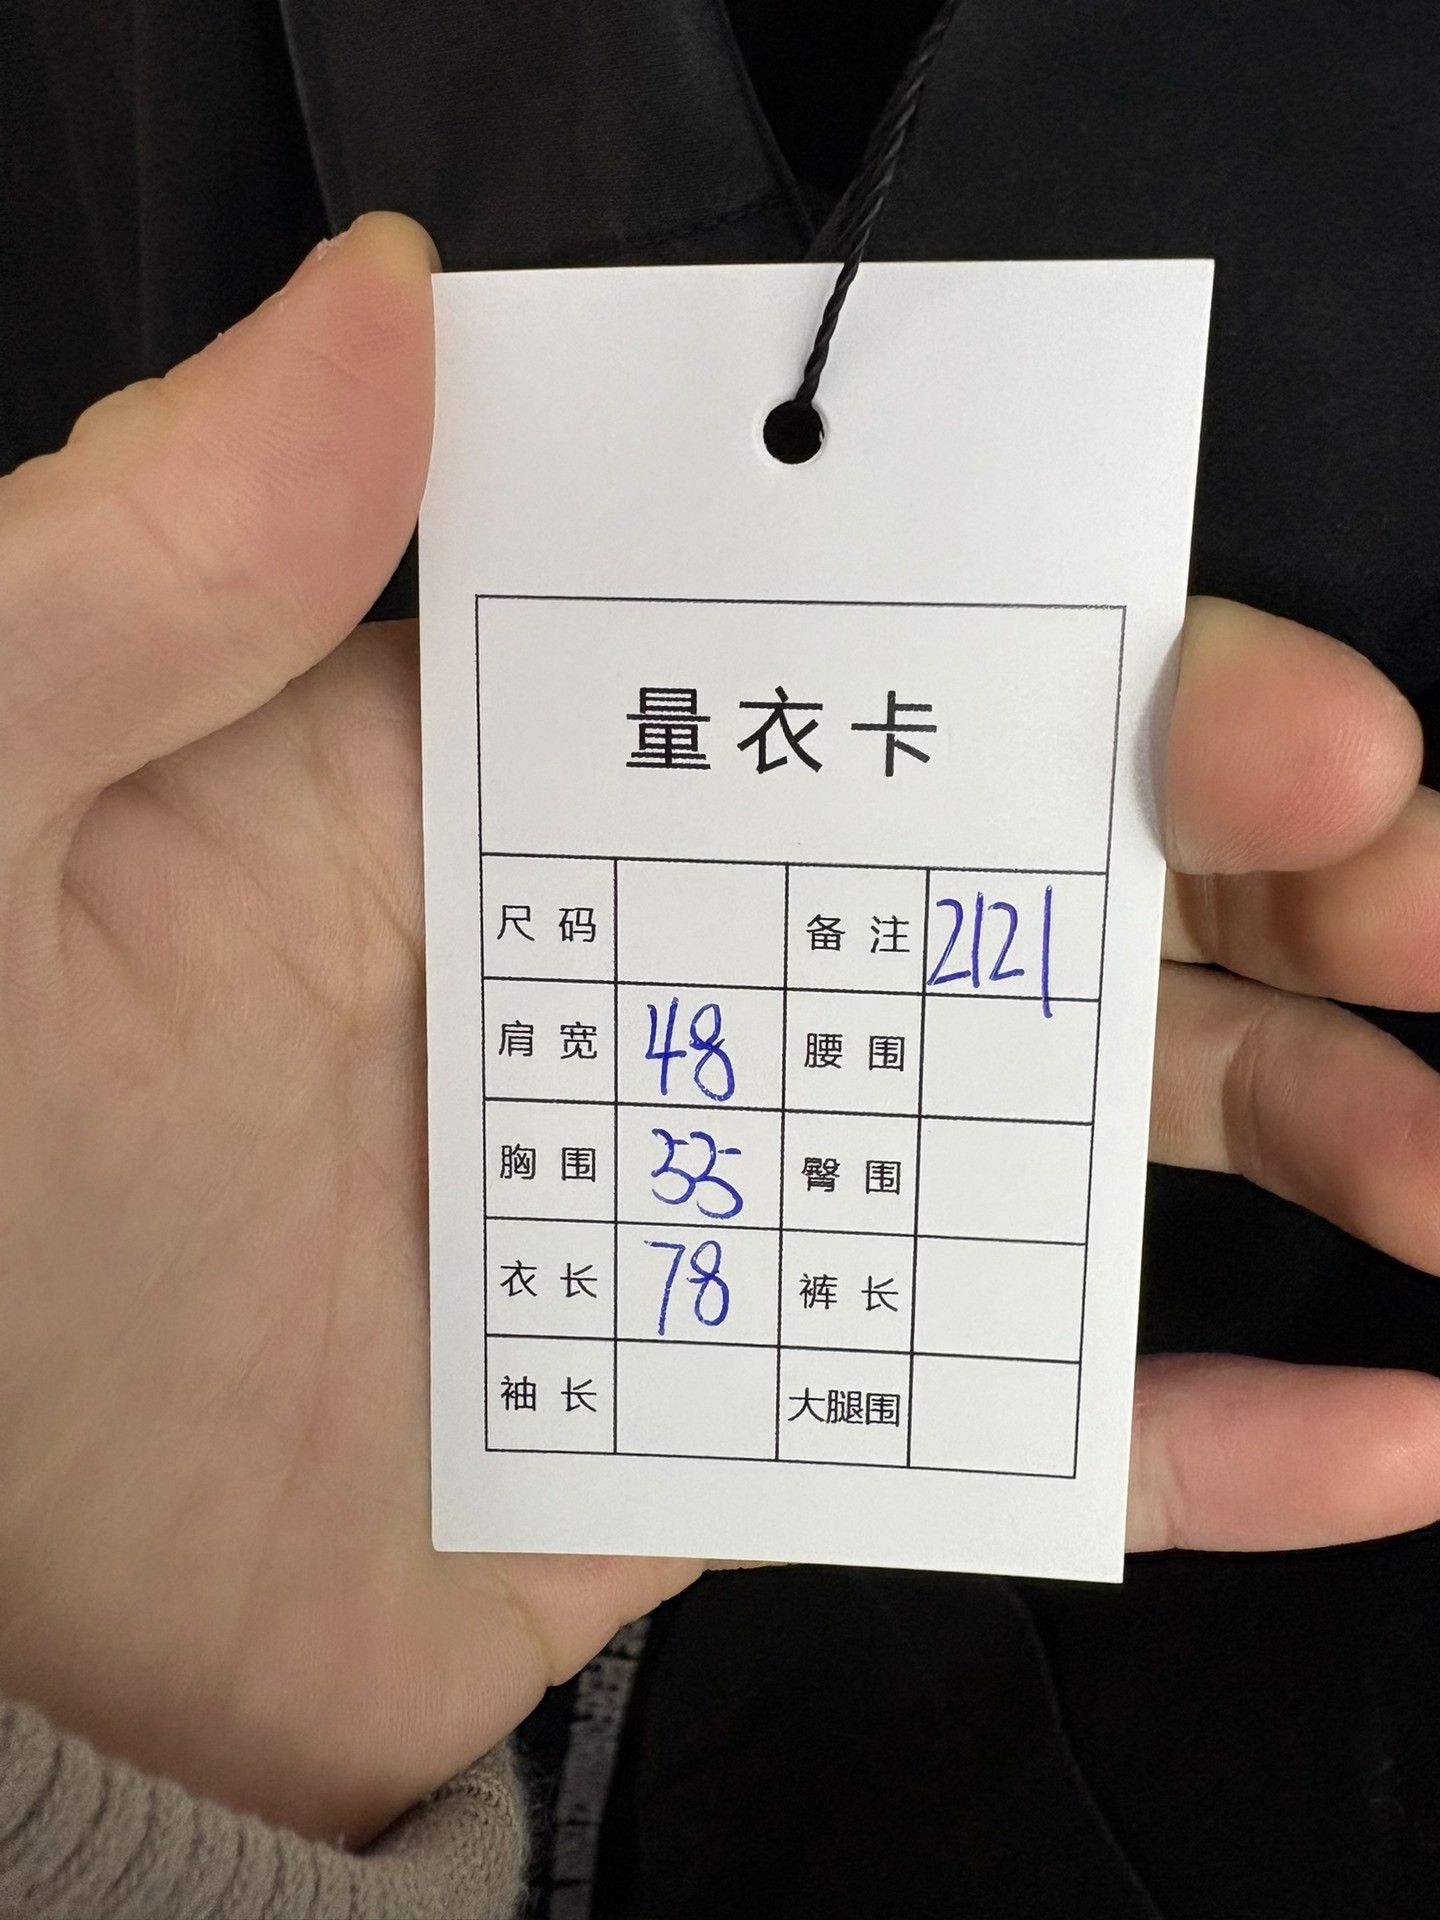 量衣卡
尺码 备注 2121
肩宽 48 腰围
胸围 55 臀围
衣长 78 裤长
袖长 大腿围